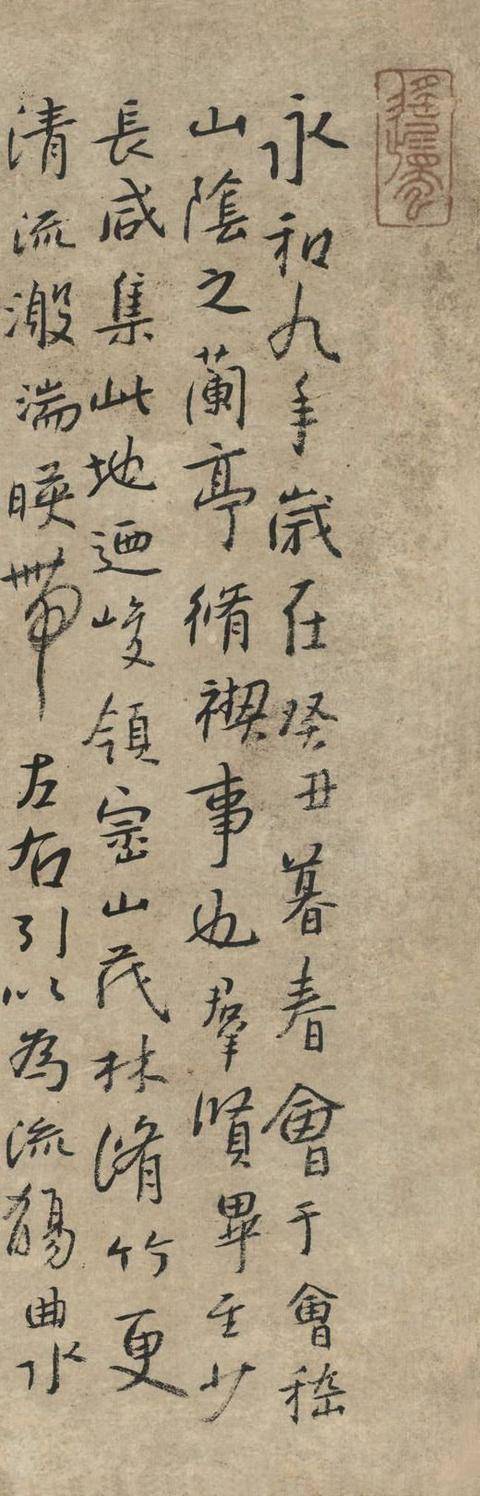 永和九年歲在癸丑暮春會于會稽
山陰之蘭亭脩禊事也羣賢畢至少
長咸集此地迺峻領崇山茂林脩竹更
清流激湍暎帶左右引以為流觴曲水